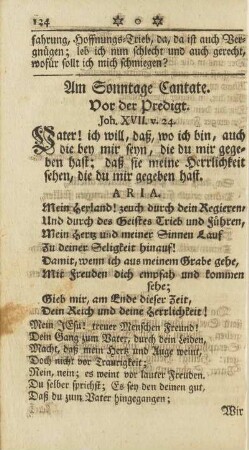 124 ✡ o ✡
fahrung, Hoffnungs-Trieb, da, da ist auch Ver-
gnügen; leb ich nun schlecht und auch gerecht,
wofür sollt ich mich schmiegen?
Am Sonntage Cantate.
Vor der Predigt.
Joh. XVII. v. 24.
Vater! ich will, daß, wo ich bin, auch
die bey mir seyn, die du mir gege-
ben hast; daß sie meine Herrlichkeit
sehen, die du mir gegeben hast.
ARIA.
Mein Heyland! zeuch durch dein Regieren,
Und durch des Geistes Trieb und Führen,
Mein Hertz und meiner Sinnen Lauf
Zu deiner Seligkeit hinauf!
Damit, wenn ich aus meinem Grabe gehe,
Mit Freuden dich empfah und kommen
sehe;
Gieb mir, am Ende dieser Zeit,
Dein Reich und deine Herrlichkeit!
Mein JEsu! treuer Menschen Freund!
Dein Gang zum Vater, durch dein Leiden,
Macht, daß mein Hertz und Auge weint,
Doch nicht vor Traurigkeit;
Nein, nein; es weint vor lauter Freuden.
Du selber sprichst; Es sey den deinen gut,
Daß du zum Vater hingegangen;
Wir